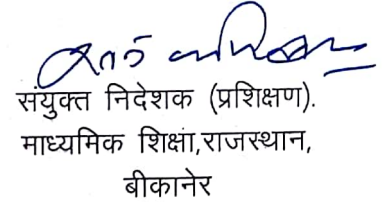 संयुक्त निदेशक (प्रशिक्षण).
माध्यमिक शिक्षा,राजस्थान,
बीकानेर